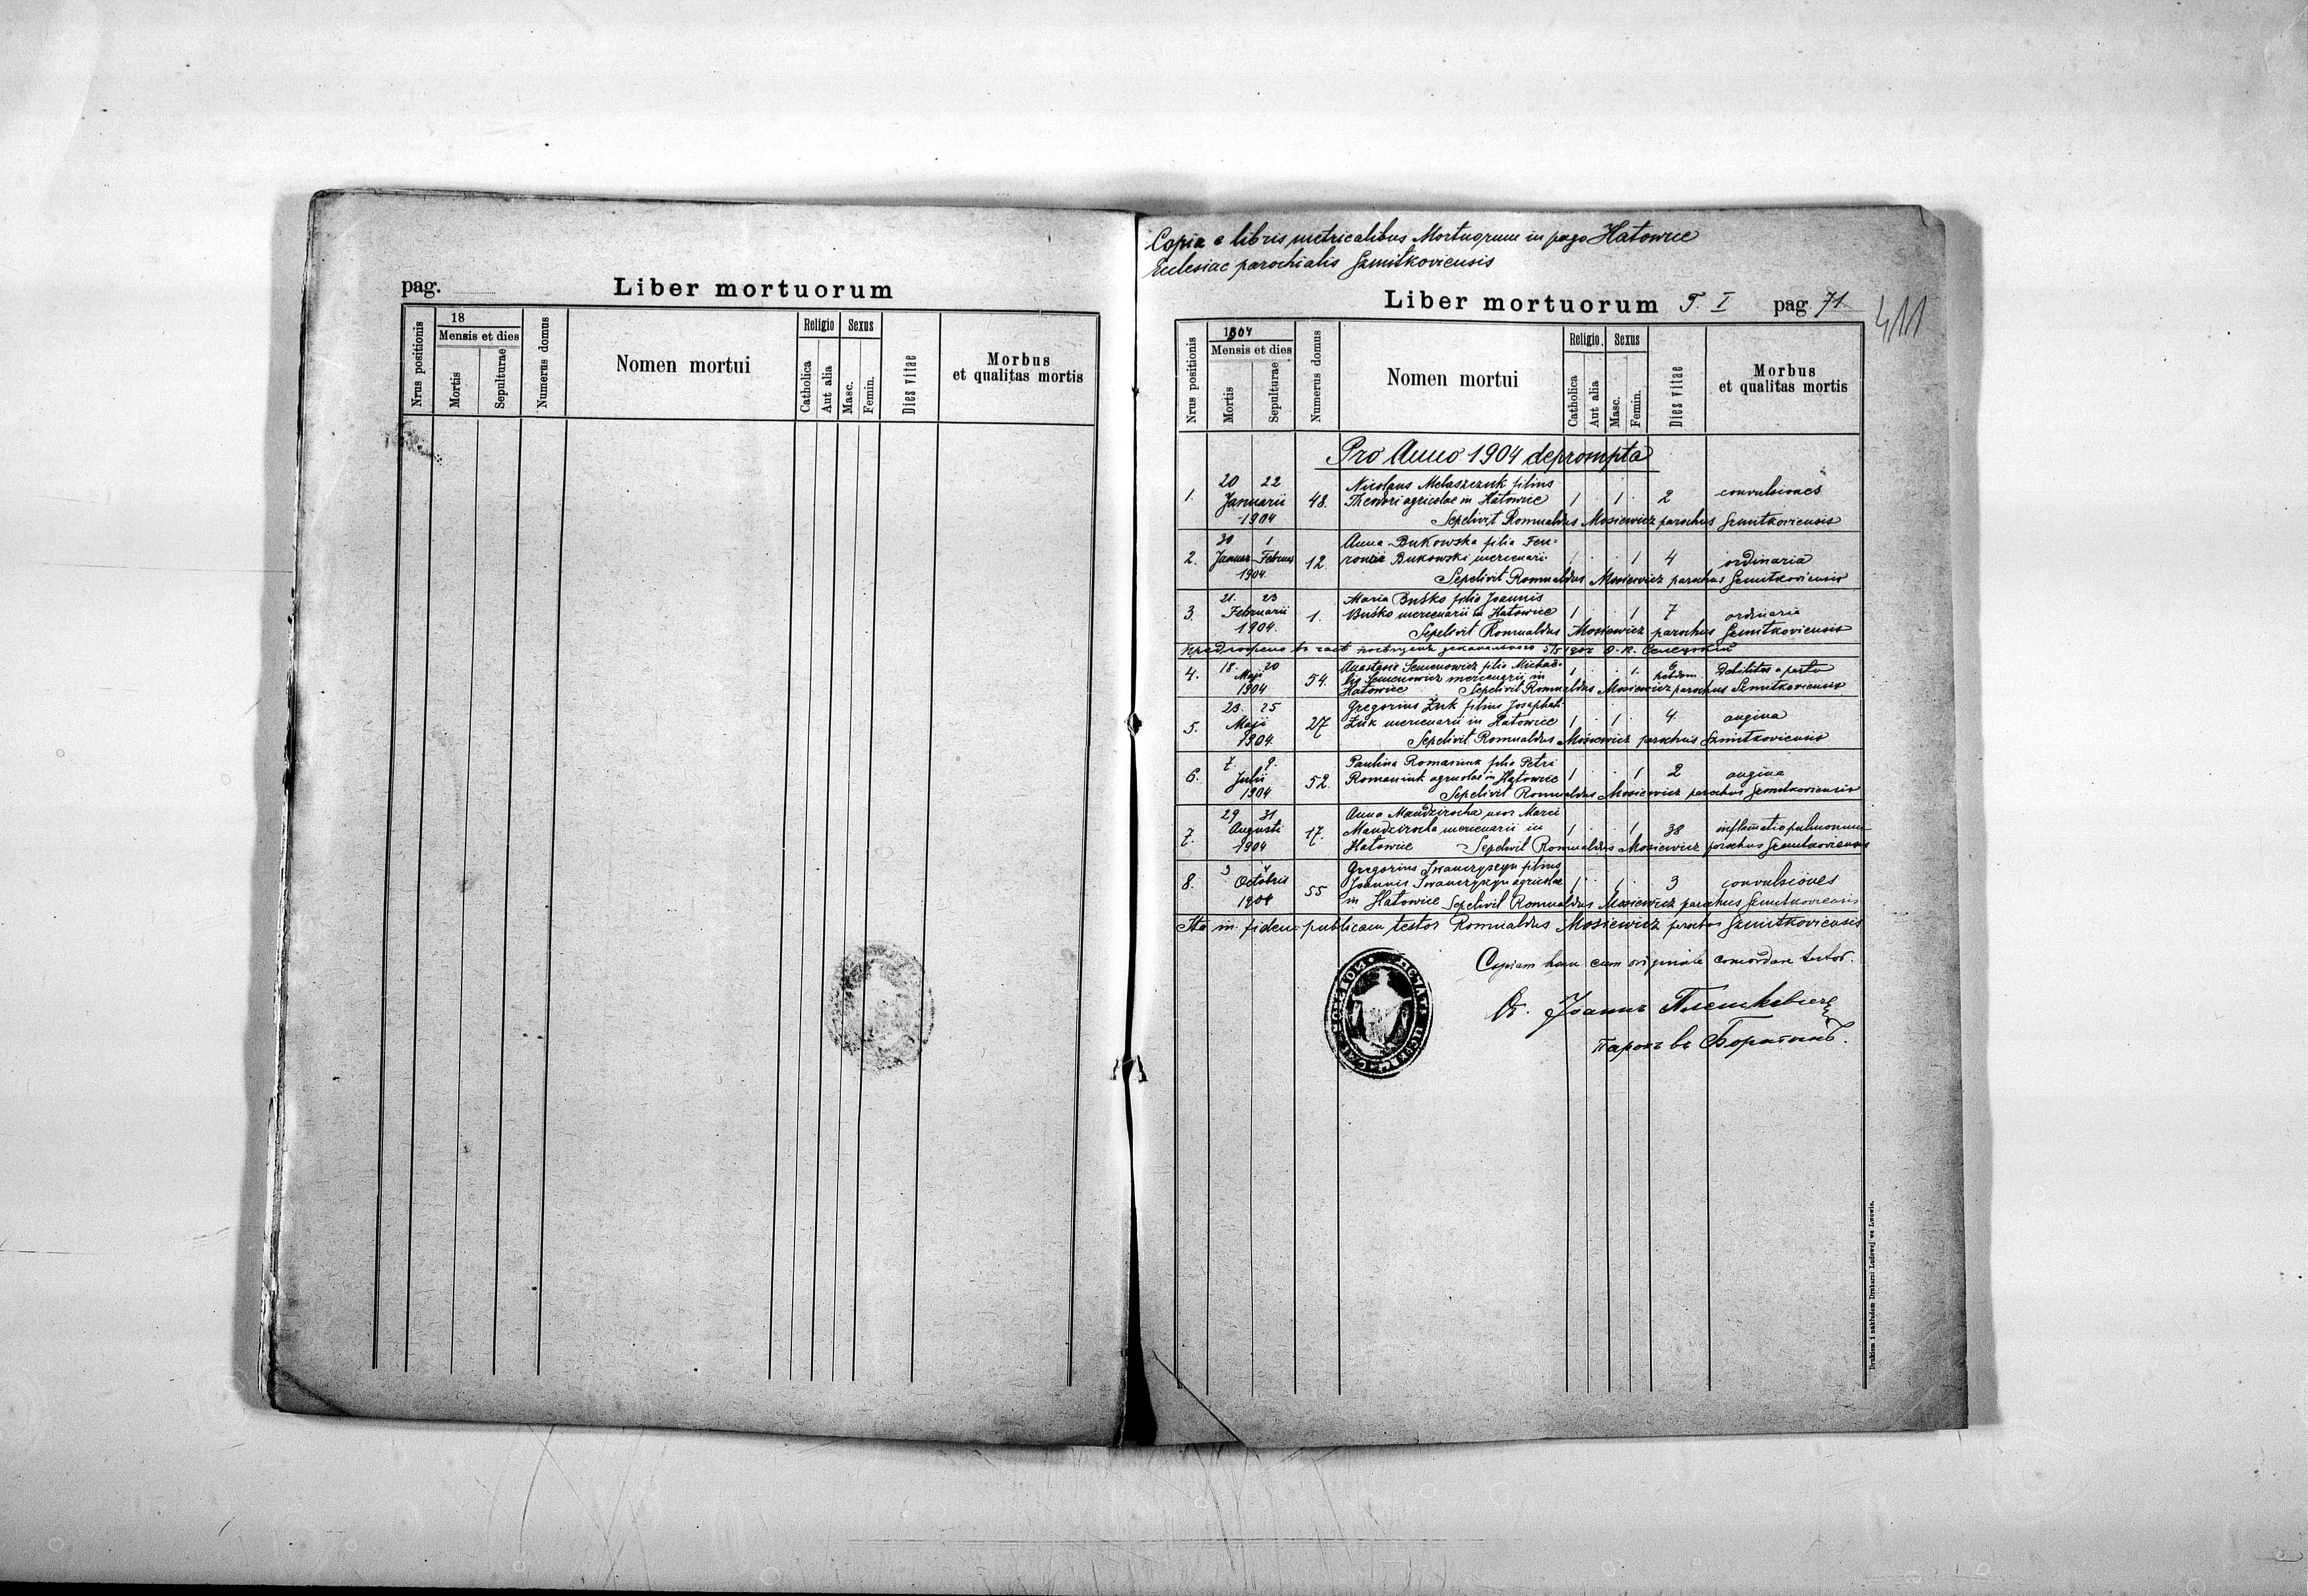 pag.
Liber mortuorum
Nrus positionis
18
Mensis et dies
Mortis
Sepulturae
Numerus domus
Nomen mortui
Religio
Catholica
Aut alia
Sexus
Masc.
Femin.
Dies vitae
Morbus
et qualitas mortis
Copia e libris metricalibus Mortuorum in pago Hatowice
Ecclesiae parochialis Szmitkoviensis
Liber mortuorum T. I pag. 71
411
Nrus positionis
1904
Mensis et dies
Mortis
Sepulturae
Numerus domus
Nomen mortui
Religio.
Catholica
Aut alia
Sexus
Masc.
Femin.
Dies vitae
Morbus
et qualitas mortis
Pro Anno 1904 deprompta
20 22 Nicolaus Melaszczuk filius
1. Januarii 48. Theodori agricolae in Hatowice 1 . 1 . 2 convulsiones
1904 Sepelivit Romualdus Mosiewicz parochus Szmitkoviensis
30 1 Anna Bukowska filia
2. Januar Februar 12. Bukowski mercenarii 1 . . 1 4 ordinaria
1904. Sepelivit Romualdus Mosiewicz parochus Szmitkoviensis
21. 23 Maria Buśko filia Joannis
3. Februarii 1. Buśko mercenarii in Hatowice 1 . . 1 7 ordinaria
1904. Sepelivit Romualdus Mosiewicz parochus Szmitkoviensis
18. 20 Anastasia Semenowicz filia Michae-
4. Maji 54. lis Semenowicz mercenarii in 1 . . 1. 6 hebdom. Debilitas a partu
1904 Hatowice Sepelivit Romualdus Mosiewicz parochus Szmitkoviensis
23. 25 Gregorius Żuk filius Josaphat
5. Maji 27 Żuk mercenarii in Hatowice 1 . 1 . 4 angina
1904. Sepelivit Romualdus Mosiewicz parochus Szmitkoviensis
7. 9. Paulina Romaniuk filia Petri
6. Julii 52. Romaniuk agricolae in Hatowice 1 . . 1 2 angina
1904 Sepelivit Romualdus Mosiewicz parochus Szmitkoviensis
29 31 Anna Mandzirocha uxor Marci
7. Augusti 17. Mandzirocha mercenarii in 1 . . 1 38 inflamatio pulmonum
1904 Hatowice Sepelivit Romualdus Mosiewicz parochus Szmitkoviensis
3 4 Gregorius Iwanczyszyn filius
8. Octobris 55 Joannis Iwanczyszyn agricolae 1 . 1 . 3 convulsiones
1904 in Hatowice Sepelivit Romualdus Mosiewicz parochus Szmitkoviensis
Ita in fidem publicam testor Romualdus Mosiewicz parochus Szmitkoviensis
Copiam hanc cum originale concordare testor.
парохъ въ
Drukiem i nakładem Drukarni Ludowej we Lwowie.